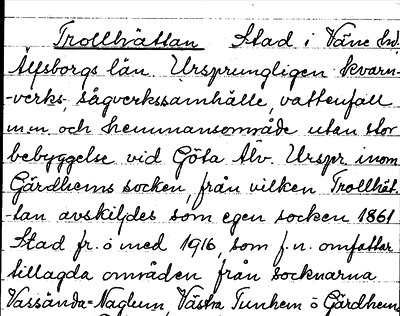 Trollhättan Stad i Väne hd,
Älfsborgs län. Ursprungligen kvarn-
-verks, sågverkssamhälle, vattenfall
m.m. och hemmansområde utan stor
bebyggelse vid Göta Älv. Urspr. inom
Gärdhems socken, från vilken Trollhät-
-tan avskildes som egen socken 1861
Stad fr. o med 1916, som f.n. omfattar
tillagda områden från socknarna
Vassända-Naglum, Västra Tunhem o Gärdhem,